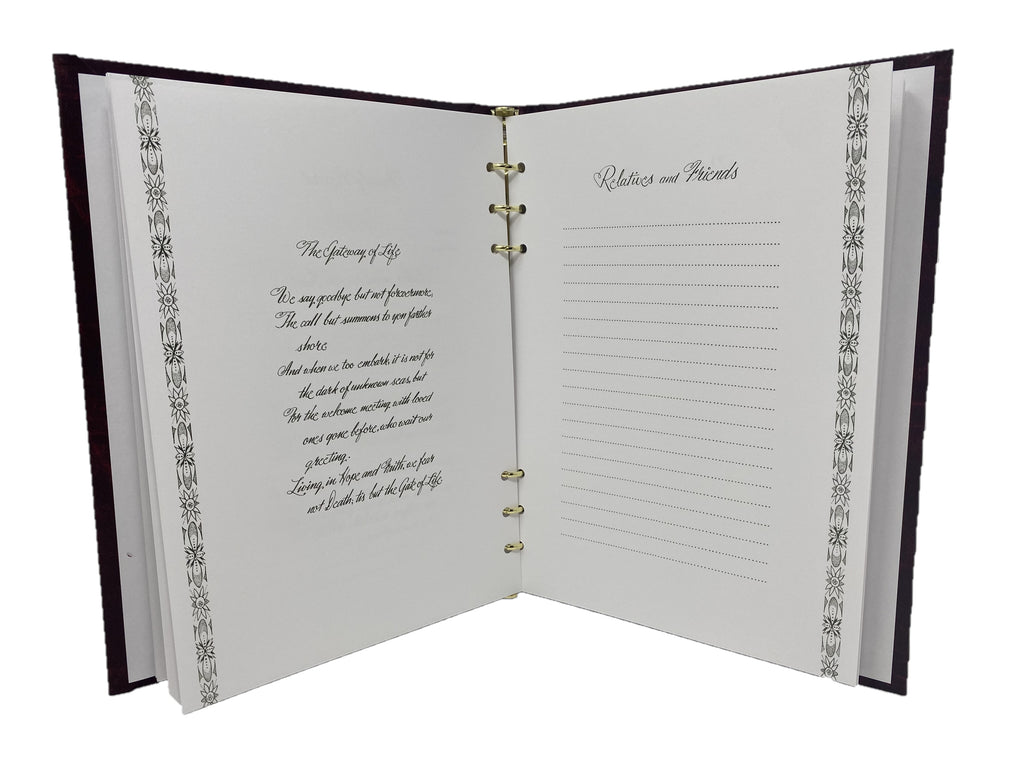 The Gateway of Life
We say goodbye but not forevermore,
The call but summons to yon farther
shore
And when we too embark, it is not for
the dark of unknown seas, but
For the welcome meeting with loved
ones gone before, who wait our
greeting.
Living, in Hope and Faith, we fear
not Death; tis but the Gate of Life.
Relatives and Friends